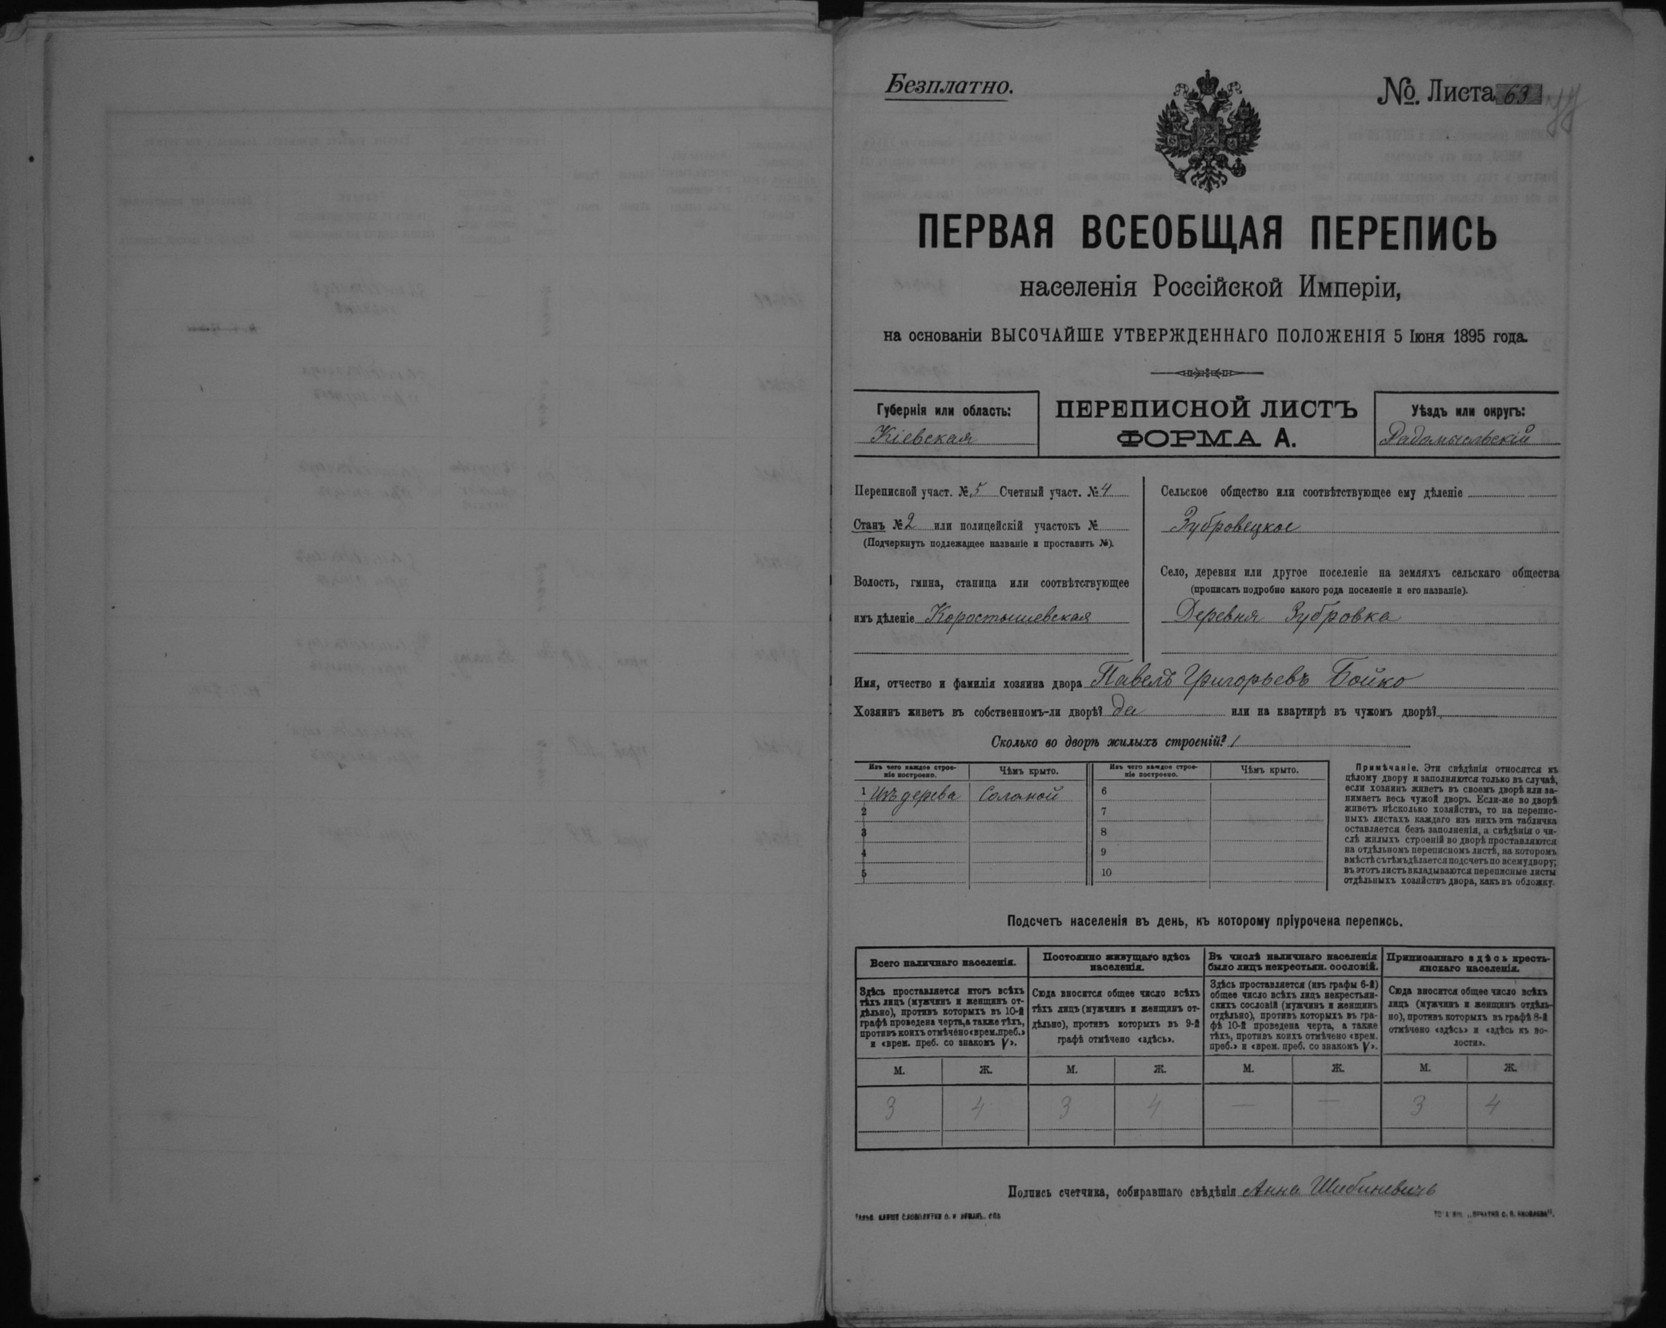 Безплатно.
№. Листа 63
ПЕРВАЯ ВСЕОБЩАЯ ПЕРЕПИСЬ
населенія Россійской Имперіи,
на основаніи ВЫСОЧАЙШЕ УТВЕРЖДЕННАГО ПОЛОЖЕНІЯ 5 Іюня 1895 года.
Губернія или область:
Кіевская
ПЕРЕПИСНОЙ ЛИСТЪ
ФОРМА А.
Уѣздъ или округъ:
Радомысльскій
Переписной участ. № 5 Счетный участ. № 4
Станъ № 2 или полицейскій участокъ №
(Подчеркнуть подлежащее названіе и проставить №).
Волость, гмина, станица или соотвѣтствующее
имъ дѣленіе Коростышевская
Сельское общество или соотвѣтствующее ему дѣленіе
Зубровецкое
Село, деревня или другое поселеніе на земляхъ сельскаго общества
(прописать подробно какого рода поселеніе и его названіе).
Деревня Зубровка
Имя, отчество и фамилія хозяина двора Павелъ Григорьевъ Бойко
Хозяинъ живетъ въ собственномъ-ли дворѣ? да или на квартирѣ въ чужомъ дворѣ?
Сколько во дворѣ жилыхъ строеній? 1
Изъ чего каждое строе-
ніе построено.
Чѣмъ крыто.
Изъ чего каждое строе-
ніе построено.
Чѣмъ крыто.
1 Изъ дерева Соломой 6
2 7
3 8
4 9
5 10
Примѣчаніе. Эти свѣдѣнія относятся къ
цѣлому двору и заполняются только въ случаѣ,
если хозяинъ живетъ въ своемъ дворѣ или за-
нимаетъ весь чужой дворъ. Если-же во дворѣ
живетъ нѣсколько хозяйствъ, то на перепис-
ныхъ листахъ каждаго изъ нихъ эта табличка
оставляется безъ заполненія, а свѣдѣнія о чи-
слѣ жилыхъ строеній во дворѣ проставляются
на отдѣльномъ переписномъ листѣ, на которомъ
вмѣстѣ съ тѣмъ дѣлается подсчетъ по всему двору;
въ этотъ листъ вкладываются переписные листы
отдѣльныхъ хозяйствъ двора, какъ въ обложку.
Подсчетъ населенія въ день, къ которому пріурочена перепись.
Всего наличнаго населенія.
Здѣсь проставляется итогъ всѣхъ
тѣхъ лицъ (мужчинъ и женщинъ от-
дѣльно), противъ которыхъ въ 10-й
графѣ проведена черта, а также тѣхъ,
противъ коихъ отмѣчено «врем. преб.»
и «врем. преб. со знакомъ V».
Постоянно живущаго здѣсь
населенія.
Сюда вносится общее число всѣхъ
тѣхъ лицъ (мужчинъ и женщинъ от-
дѣльно), противъ которыхъ въ 9-й
графѣ отмѣчено «здѣсь».
Въ числѣ наличнаго населенія
было лицъ некрестьян. сословій.
Здѣсь проставляется (изъ графы 6-й)
общее число всѣхъ лицъ некрестьян-
скихъ сословій (мужчинъ и женщинъ
отдѣльно), противъ которыхъ въ гра-
фѣ 10-й проведена черта, а также
тѣхъ, противъ коихъ отмѣчено «врем.
преб.» и «врем. преб. со знакомъ V».
Приписаннаго здѣсь кресть-
янскаго населенія.
Сюда вносится общее число всѣхъ
лицъ (мужчинъ и женщинъ отдѣль-
но), противъ которыхъ въ графѣ 8-й
отмѣчено «здѣсь» и «здѣсь въ во-
лости».
М. Ж. М. Ж. М. Ж. М. Ж.
3 4 3 4 — — 3 4
Подпись счетчика, собиравшаго свѣдѣнія Анна Шибиневичъ